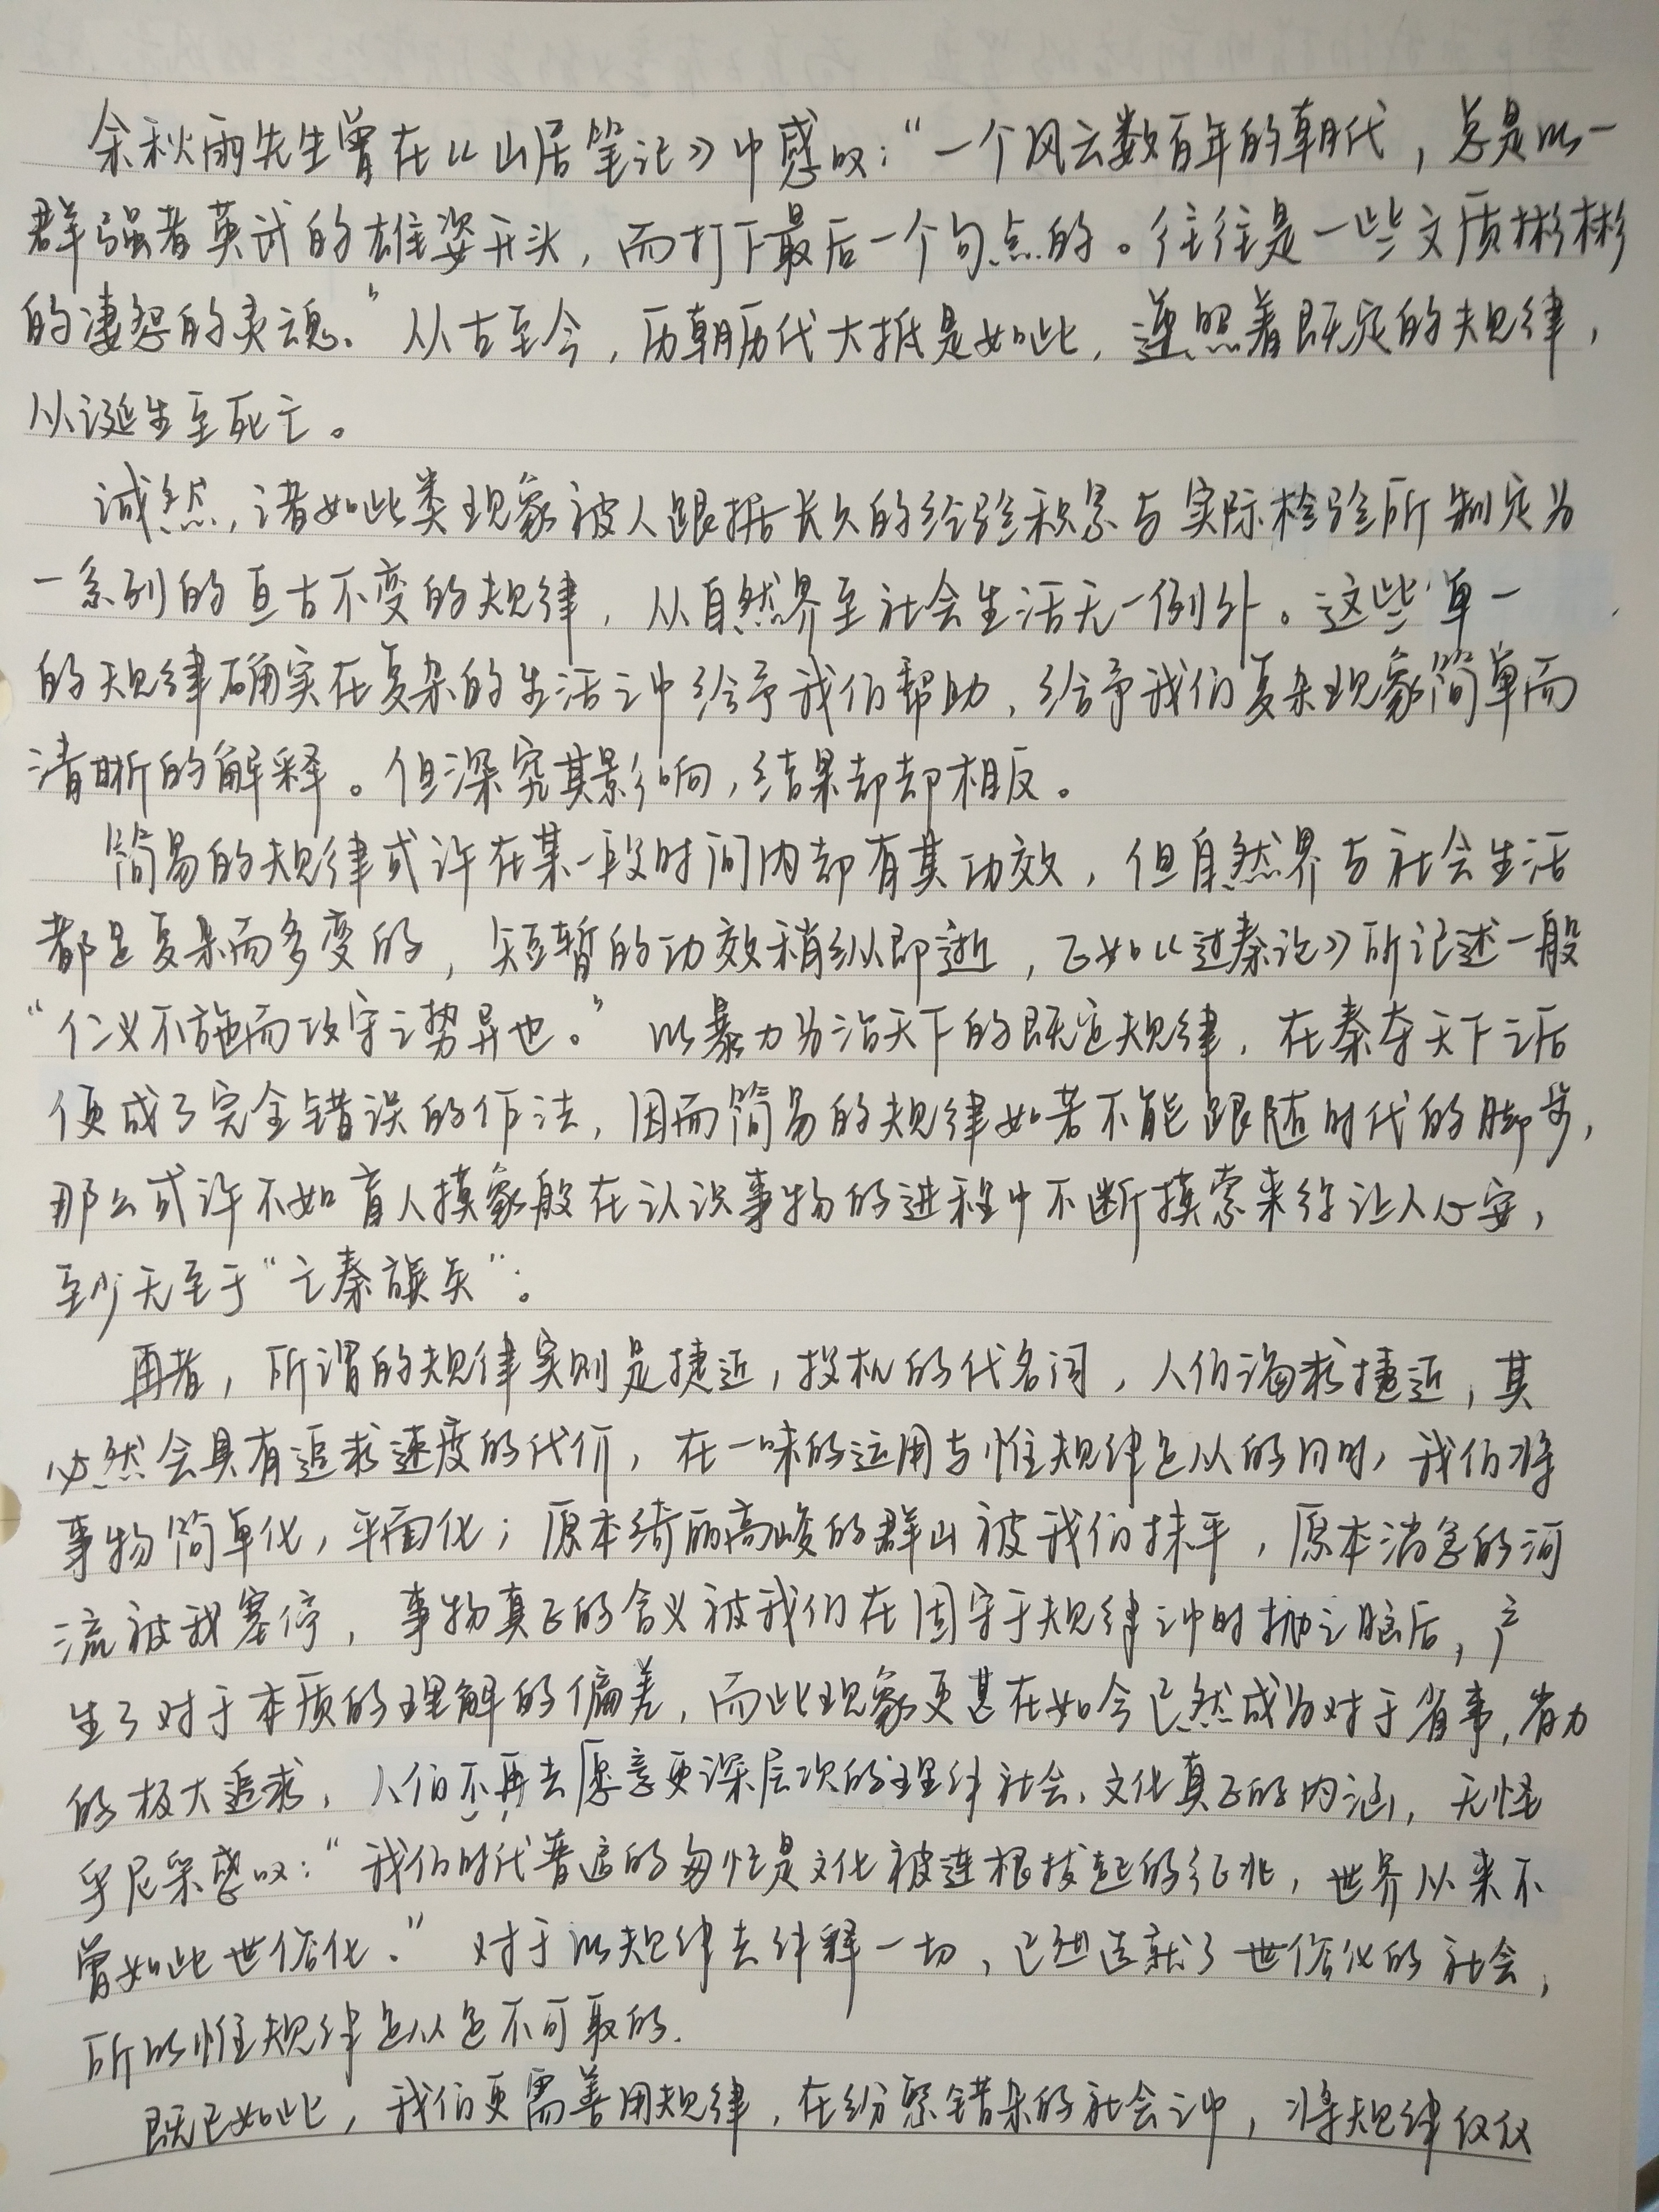 余秋雨先生曾在《山居笔记》中感叹：“一个风云数百年的朝代，总是以一
群强者英武的雄姿开头，而打下最后一个句点的。往往是一些文质彬彬
的凄怨的灵魂。”从古至今，历朝历代大抵是如此，遵照着既定的规律，
从诞生至死亡。
诚然，诸如此类现象被人跟据长久的经验积累与实际检验所制定为
一系列的亘古不变的规律，从自然界至社会生活无一例外。这些单一
的规律确实在复杂的生活之中给予我们帮助，给予我们复杂现象简单而
清晰的解释。但深究其影响，结果却却相反。
简易的规律或许在某一段时间内却有其功效，但自然界与社会生活
都是复杂而多变的，短暂的功效稍纵即逝，正如《过秦论》所记述一般
“仁义不施而攻守之势异也。”以暴力为治天下的既定规律，在秦夺天下之后
便成了完全错误的作法，因而简易的规律如若不能跟随时代的脚步，
那么或许不如盲人摸象般在认识事物的进程中不断摸索来得让人心安，
至少无至于“亡秦族矣”。
再者，所谓的规律实则是捷近，投机的代名词，人们渴求捷近，其
必然会具有追求速度的代价，在一味的运用与惟规律是从的同时，我们将
事物简单化，平面化；原本绮丽高峻的群山被我们抹平，原本湍急的河
流被我塞停，事物真正的含义被我们在固守于规律之中时抛之脑后，产
生了对于本质的理解的偏差，而此现象更甚在如今已然成为对于省事，省力
的极大追求，人们不再去愿意更深层次的理解社会，文化真正的内涵，无怪
乎尼采感叹：“我们时代普遍的匆忙是文化被连根拔起的征兆，世界从来不
曾如此世俗化。”对于以规律去解释一切，已然造就了世俗化的社会，
所以惟规律是从是不可取的.
既已如此，我们更需善用规律，在纷繁错杂的社会之中，将规律仅仅